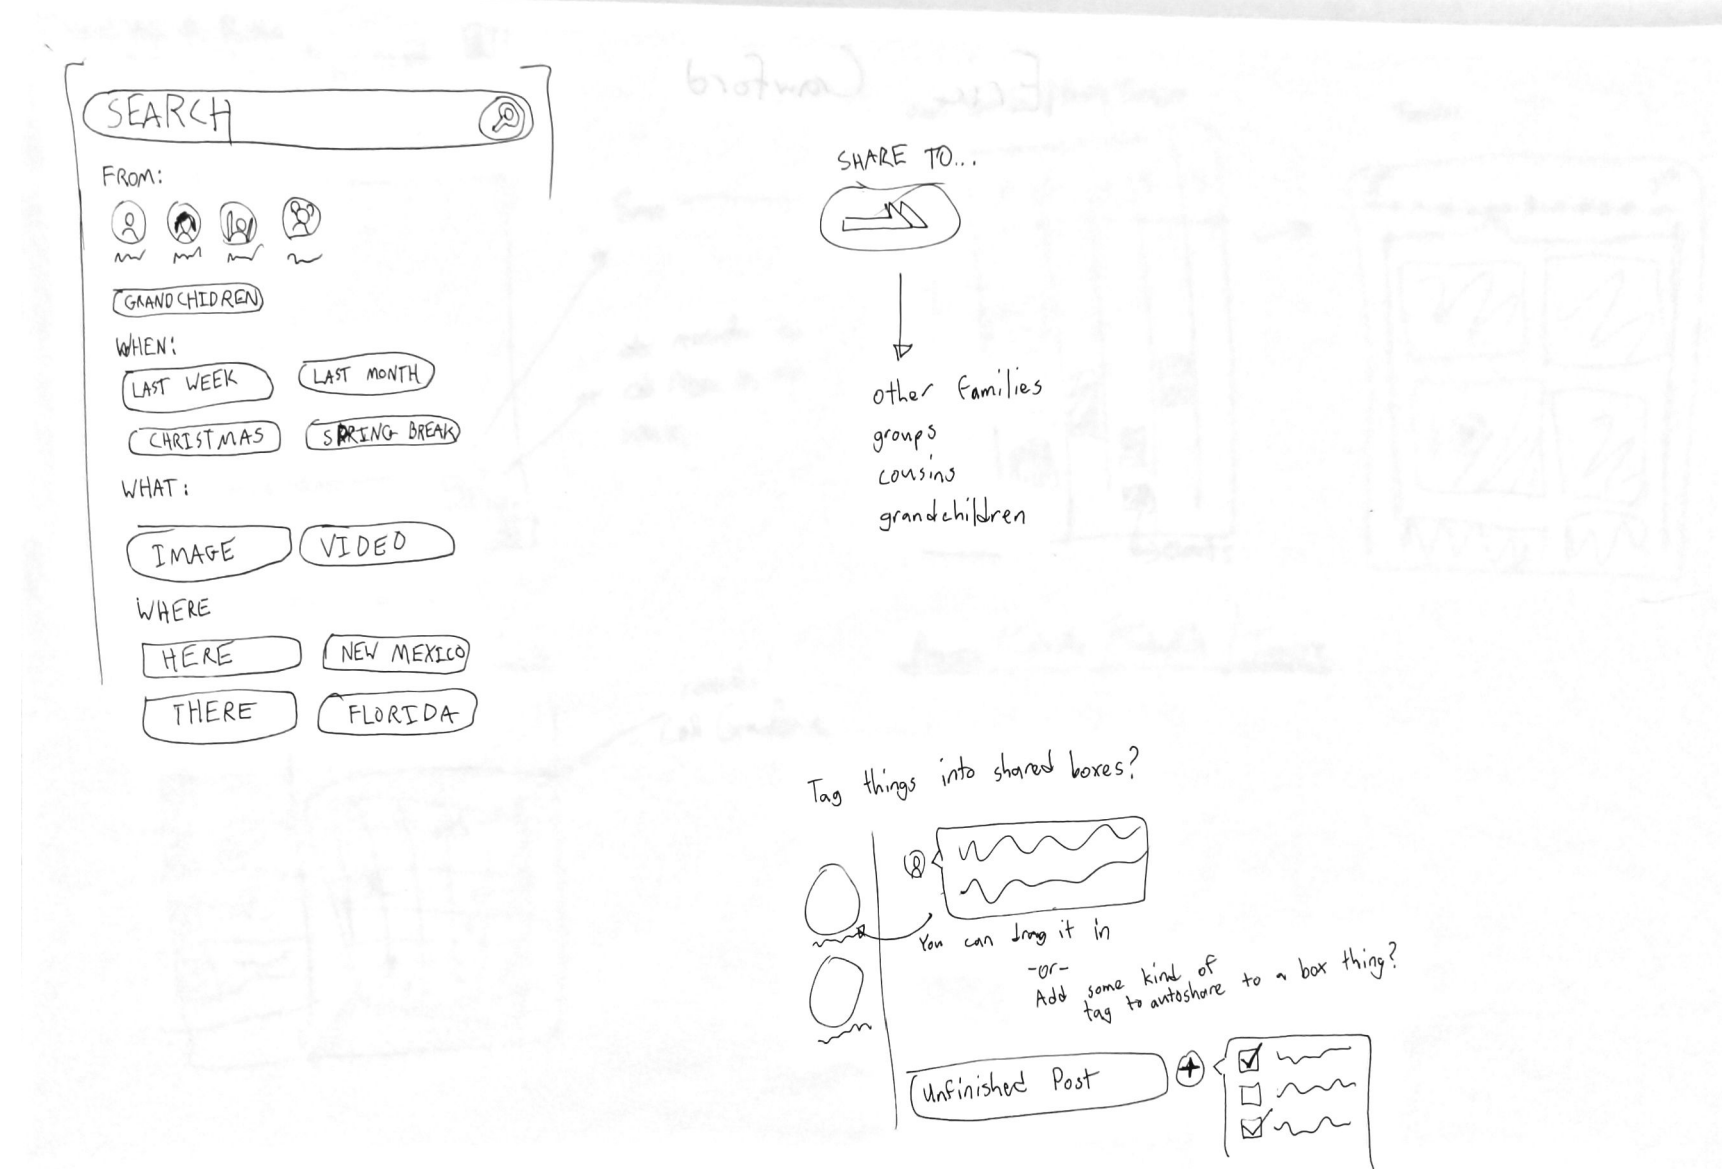 SEARCH
FROM:
GRANDCHIDREN
WHEN:
LAST WEEK
LAST MONTH
CHRISTMAS
SPRING BREAK
WHAT:
IMAGE
VIDEO
WHERE
HERE
NEW MEXICO
THERE
FLORIDA
SHARE TO...
other families
groups
cousins
grandchildren
Tag things into shared boxes?
You can drag it in
-or-
Add some kind of
tag to autoshare to a box thing?
Unfinished Post